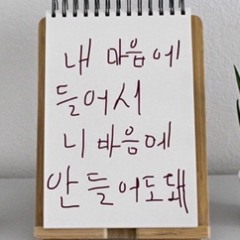 내 마음에
들어서
니 마음에
안 들어도돼